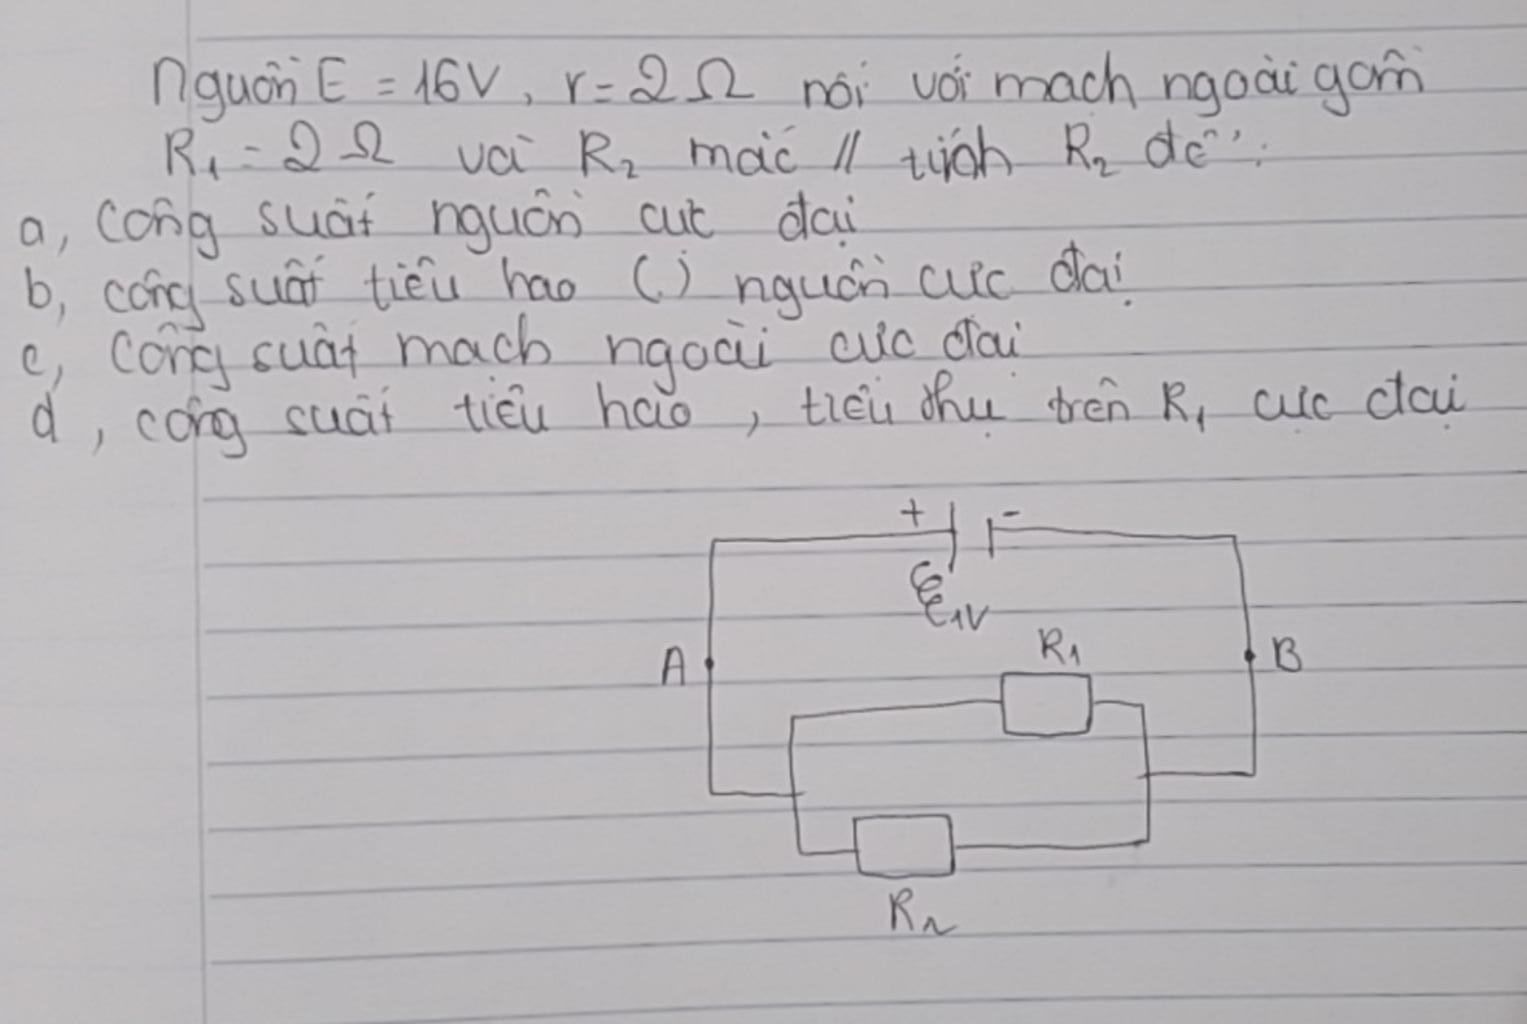 Nguồn E = 16V, r = 2 Ω nối với mạch ngoài gồm
R₁ = 2 Ω và R₂ mắc // tính R₂ để :
a, công suất nguồn cực đại
b, công suất tiêu hao (.) nguồn cực đại
c, công suất mạch ngoài cực đại
d, công suất tiêu hao, tiêu thụ trên R₁ cực đại
+ -
R₁
A B
R₂